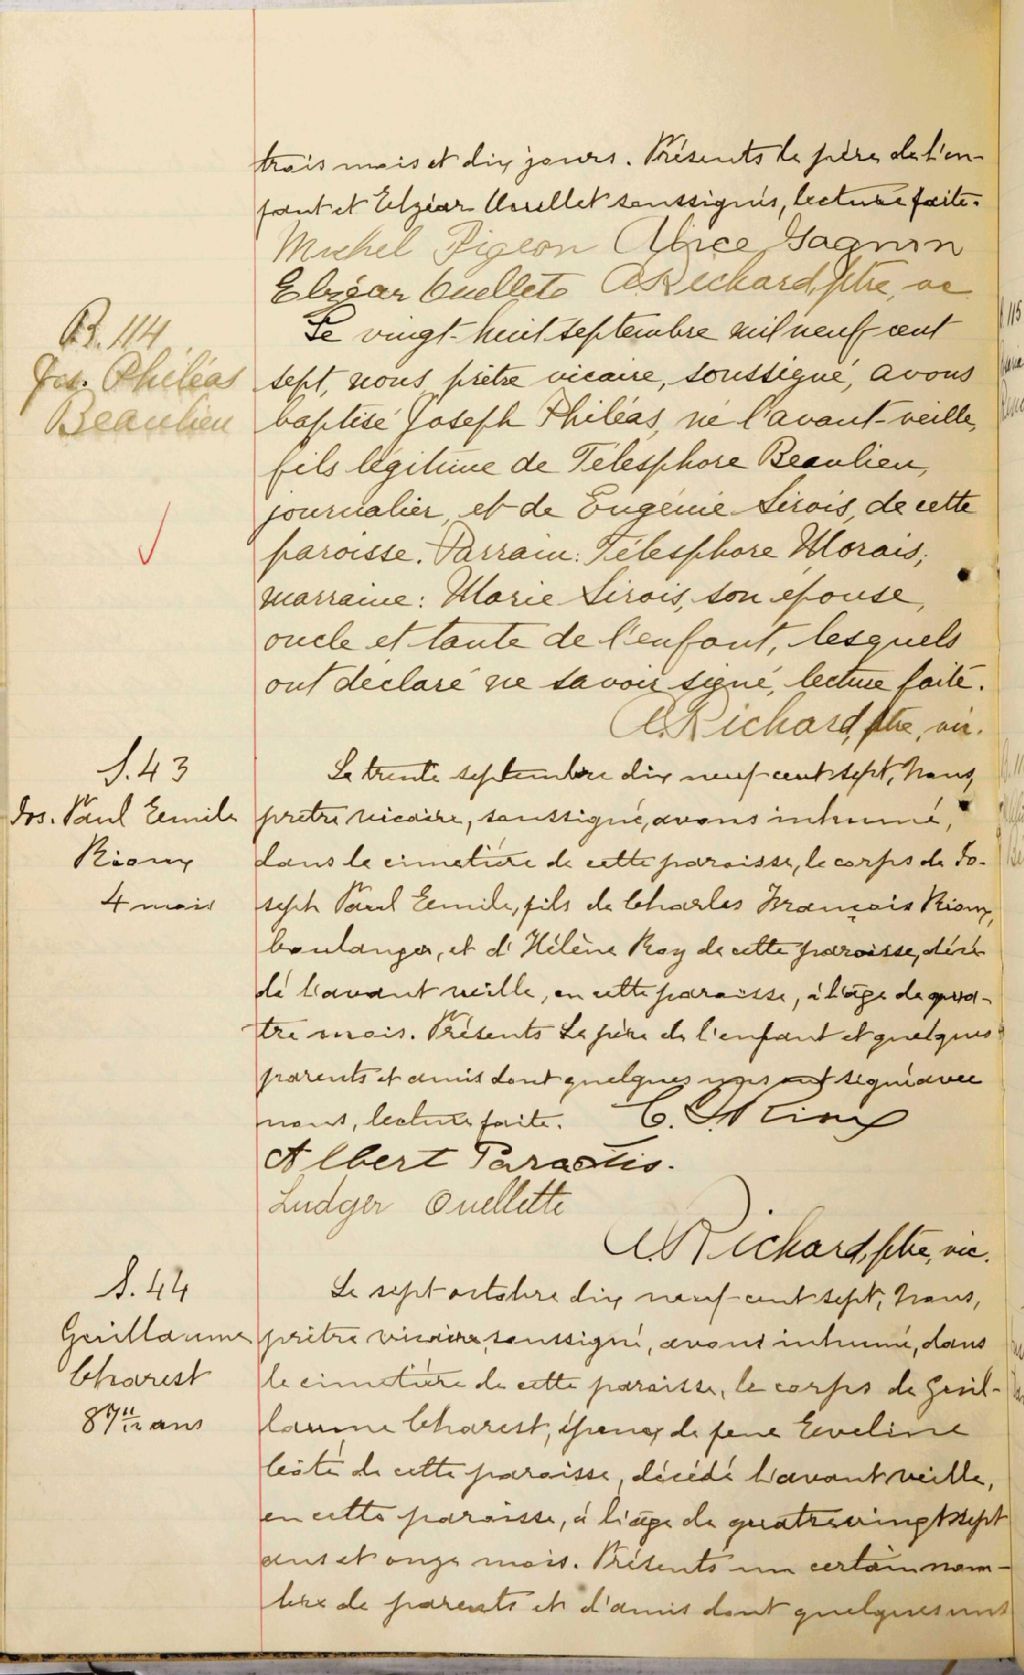 trois mois et dix jours. Présents le père de l'en-
fant et Elzéar Ouellet soussignés, lecture faite.
Michel Pigeon Alice Gagnon
Elzéar Ouellete A. Richard, ptre, vic
B. 114
Jos. Philéas
Beaulieu
Le vingt-huit septembre mil neuf cent
sept, nous, prêtre vicaire, soussigné, avons
baptisé Joseph Philéas, né l'avant-veille,
fils légitime de Télesphore Beaulieu,
journalier, et de Eugénie Sirois, de cette
paroisse. Parrain: Télesphore Morais;
marraine: Marie Sirois, son épouse,
oncle et tante de l'enfant, lesquels
ont déclaré ne savoir signé, lecture faite.
A. Richard, ptre, vic.
S. 43
Jos. Paul Emile
Rioux
4 mois
Le trente septembre dix neuf cent sept, Nous,
prêtre vicaire, soussigné, avons inhumé,
dans le cimetière de cette paroisse, le corps de Jo-
seph Paul Emile, fils de Charles François Rioux,
boulanger, et d'Hélène Roy de cette paroisse, décé-
dé l'avant veille, en cette paroisse, à l'âge de qua-
tre mois. Présents le père de l'enfant et quelques
parents et amis dont quelques uns ont signé avec
nous, lecture faite. C. F. Rioux
Albert Paradis.
Ludger Ouellette
A. Richard, ptre, vic.
S. 44
Guillaume
Charest
87 11/12 ans
Le sept octobre dix neuf cent sept, Nous,
prêtre vicaire, soussigné, avons inhumé, dans
le cimetière de cette paroisse, le corps de Guil-
laume Charest, époux de feue Eveline
Côté de cette paroisse, décédé l'avant veille,
en cette paroisse, à l'âge de quatre vingt sept
ans et onze mois. Présents un certain nom-
bre de parents et d'amis dont quelques uns